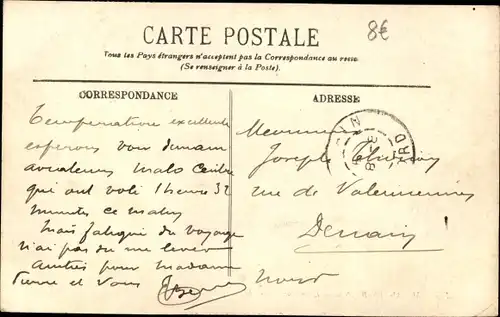 CARTE POSTALE
8€
Tous les Pays étrangers n'acceptent pas la Correspondance au recto
(Se renseigner à la Poste).
CORRESPONDANCE
ADRESSE
Température excellente
espérons voir demain
aviateurs
qui ont volé 1 heure 32
minutes ce matin
Mais fatigué du voyage
n'ai pas pu me lever
Amitiés pour Madame
Pierre et Vous
Monsieur
Joseph
rue de Valenciennes
Denain
Nord